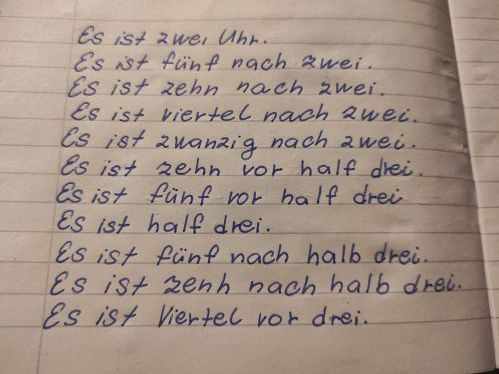 Es ist zwei Uhr.
Es ist fünf nach zwei.
Es ist zehn nach zwei.
Es ist viertel nach zwei.
Es ist zwanzig nach zwei.
Es ist zehn vor half drei.
Es ist fünf vor half drei
Es ist half drei.
Es ist fünf nach halb drei.
Es ist zenh nach halb drei.
Es ist Viertel vor drei.